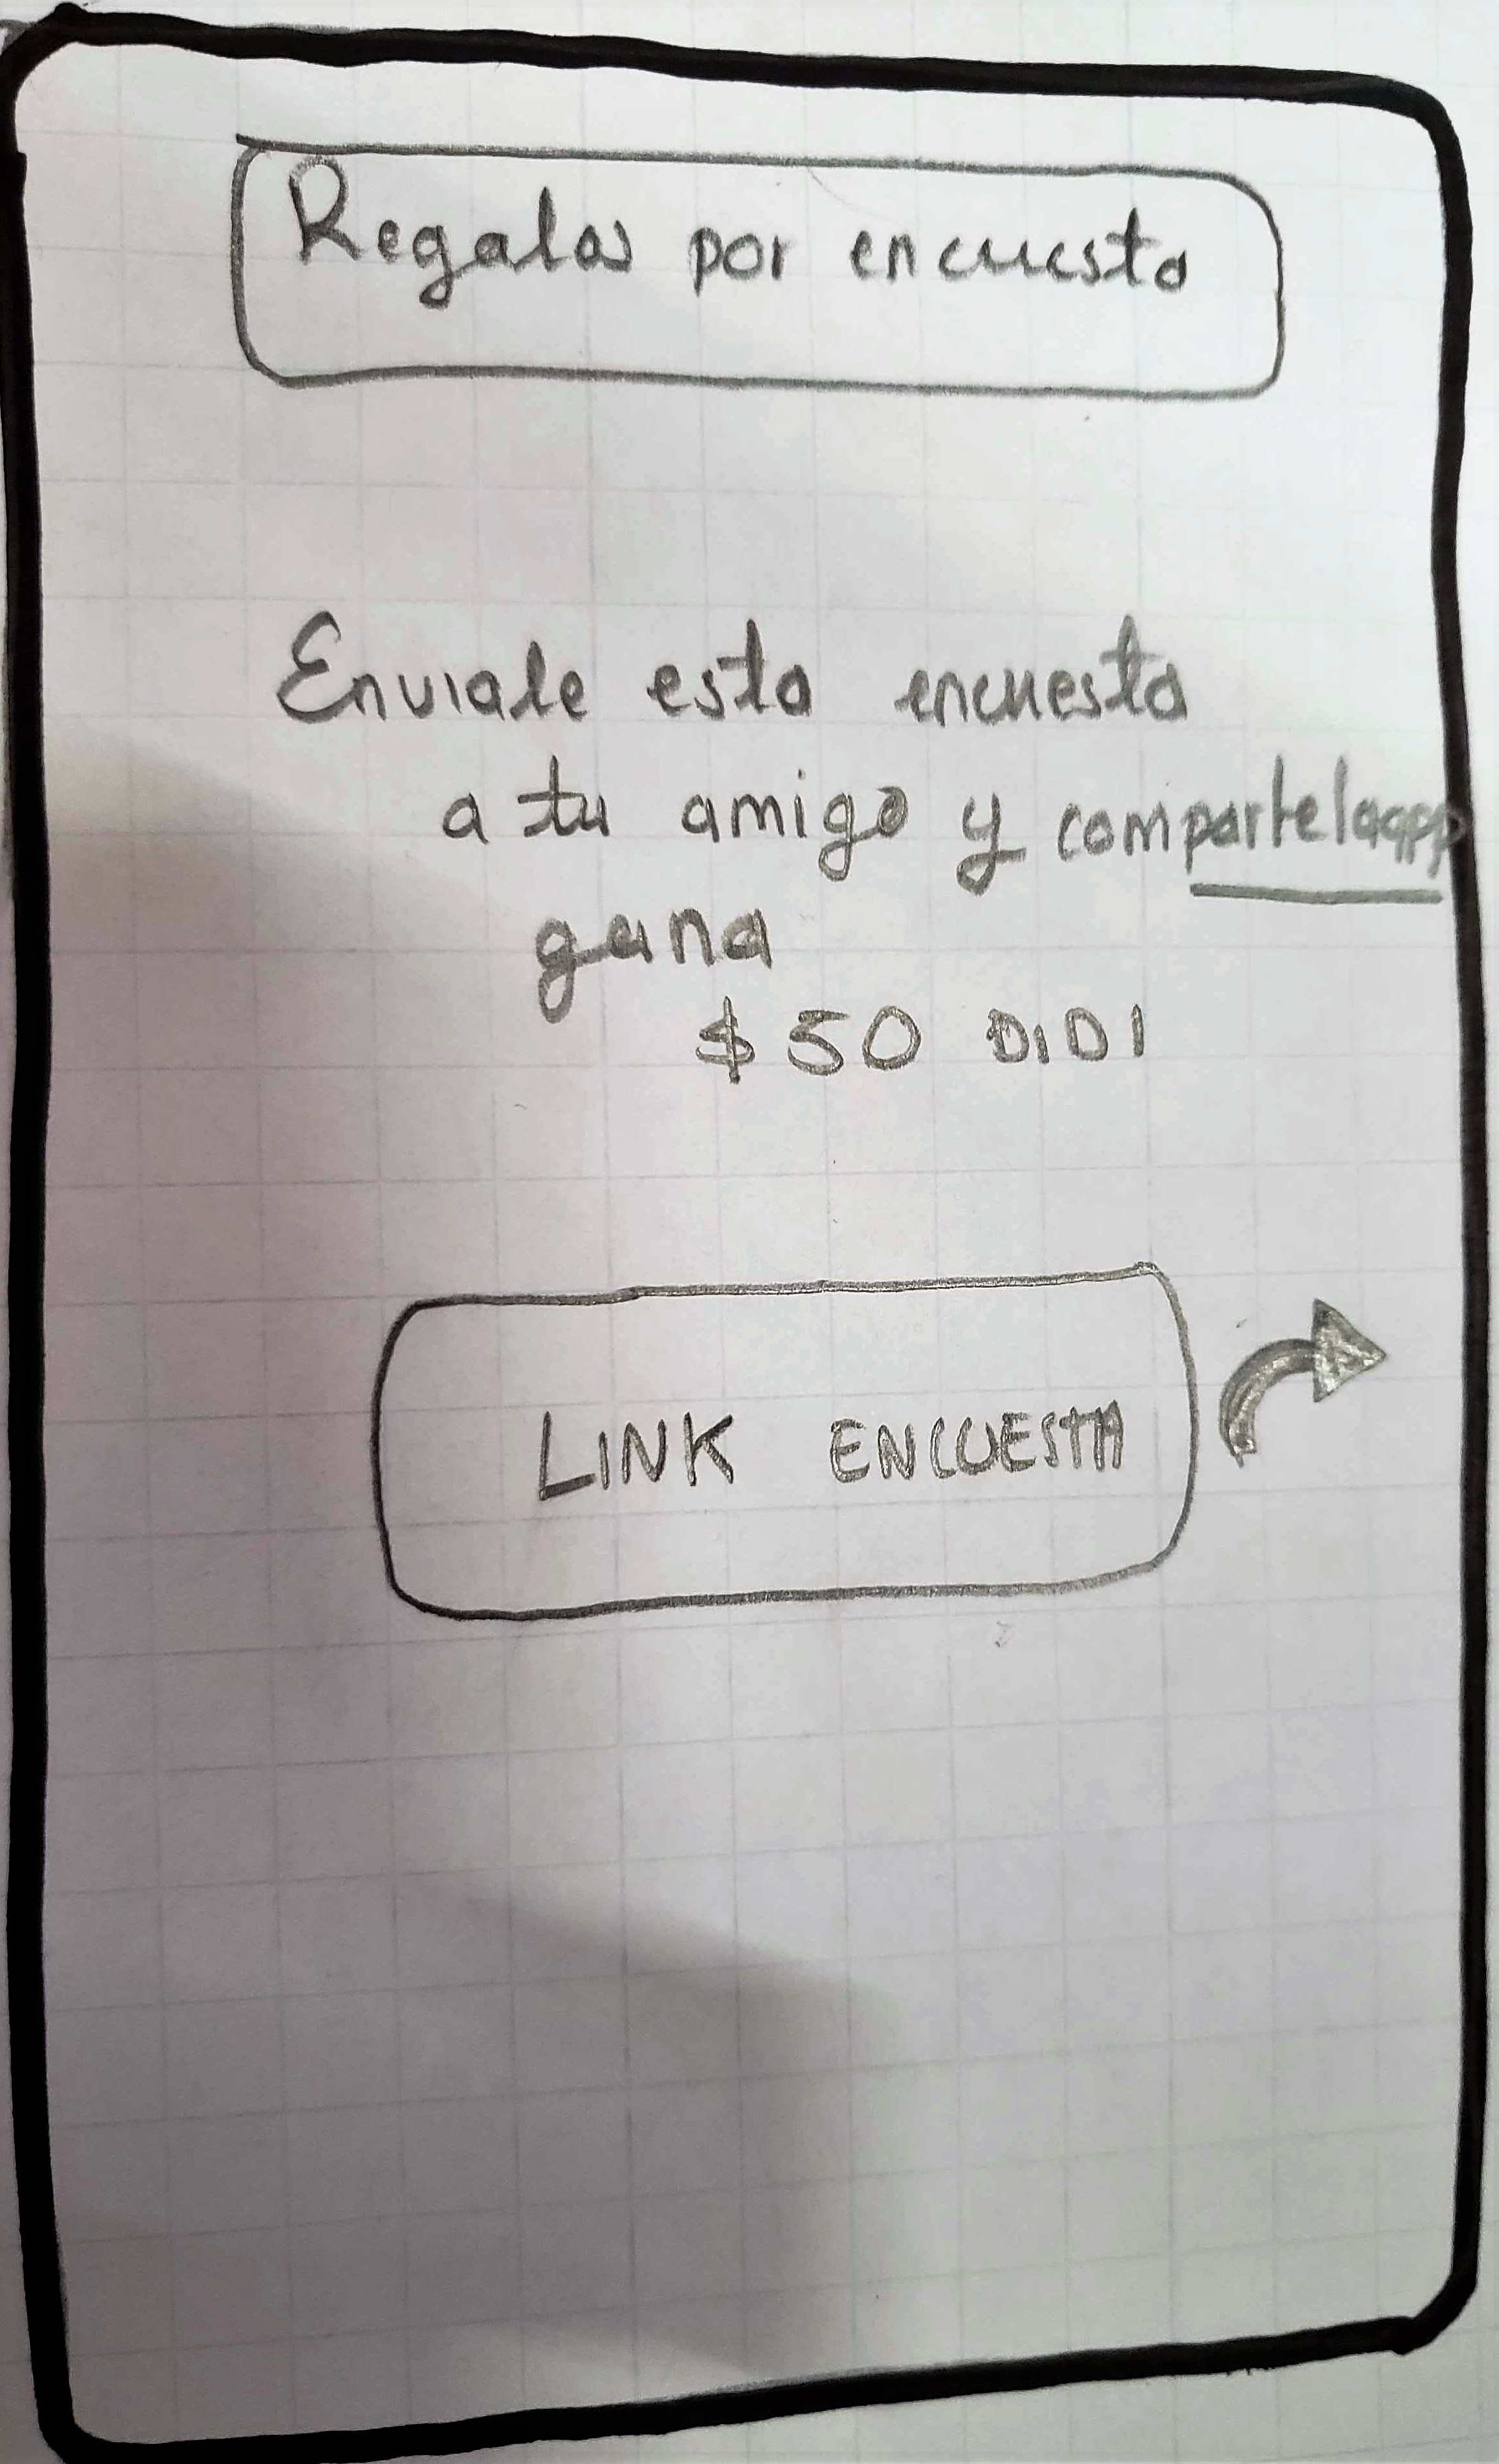 Regalos por encuesta
Enviale esta encuesta
a tu amigo y comparte la app
gana
$ 50 DIDI
LINK ENCUESTA